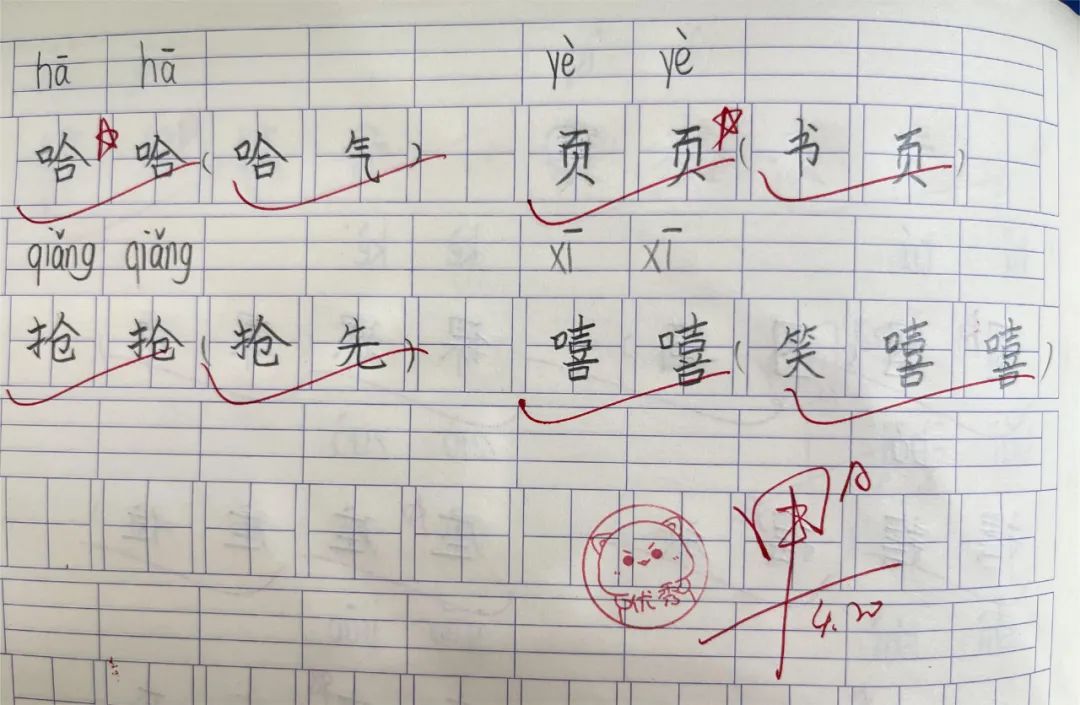 hā hā yè yè
哈 哈 ( 哈 气 ) 页 页 ( 书 页 )
qiǎng qiǎng xī xī
抢 抢 ( 抢 先 ) 嘻 嘻 ( 笑 嘻 嘻 )
优秀
甲
4.20